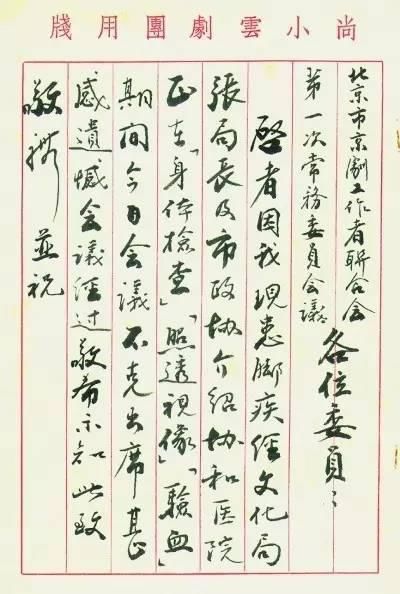 尚小雲劇團用牋
北京市京劇工作者聯合会
第一次常務委員会議
各位委員：
啓者因我現患脚疾經文化局
張局長及市政协介紹协和医院
正在「身体檢查」「照透視像」「驗血」
期间今日会議不克出席甚
感遺憾会議經过敬希示知此致
敬禮 並祝